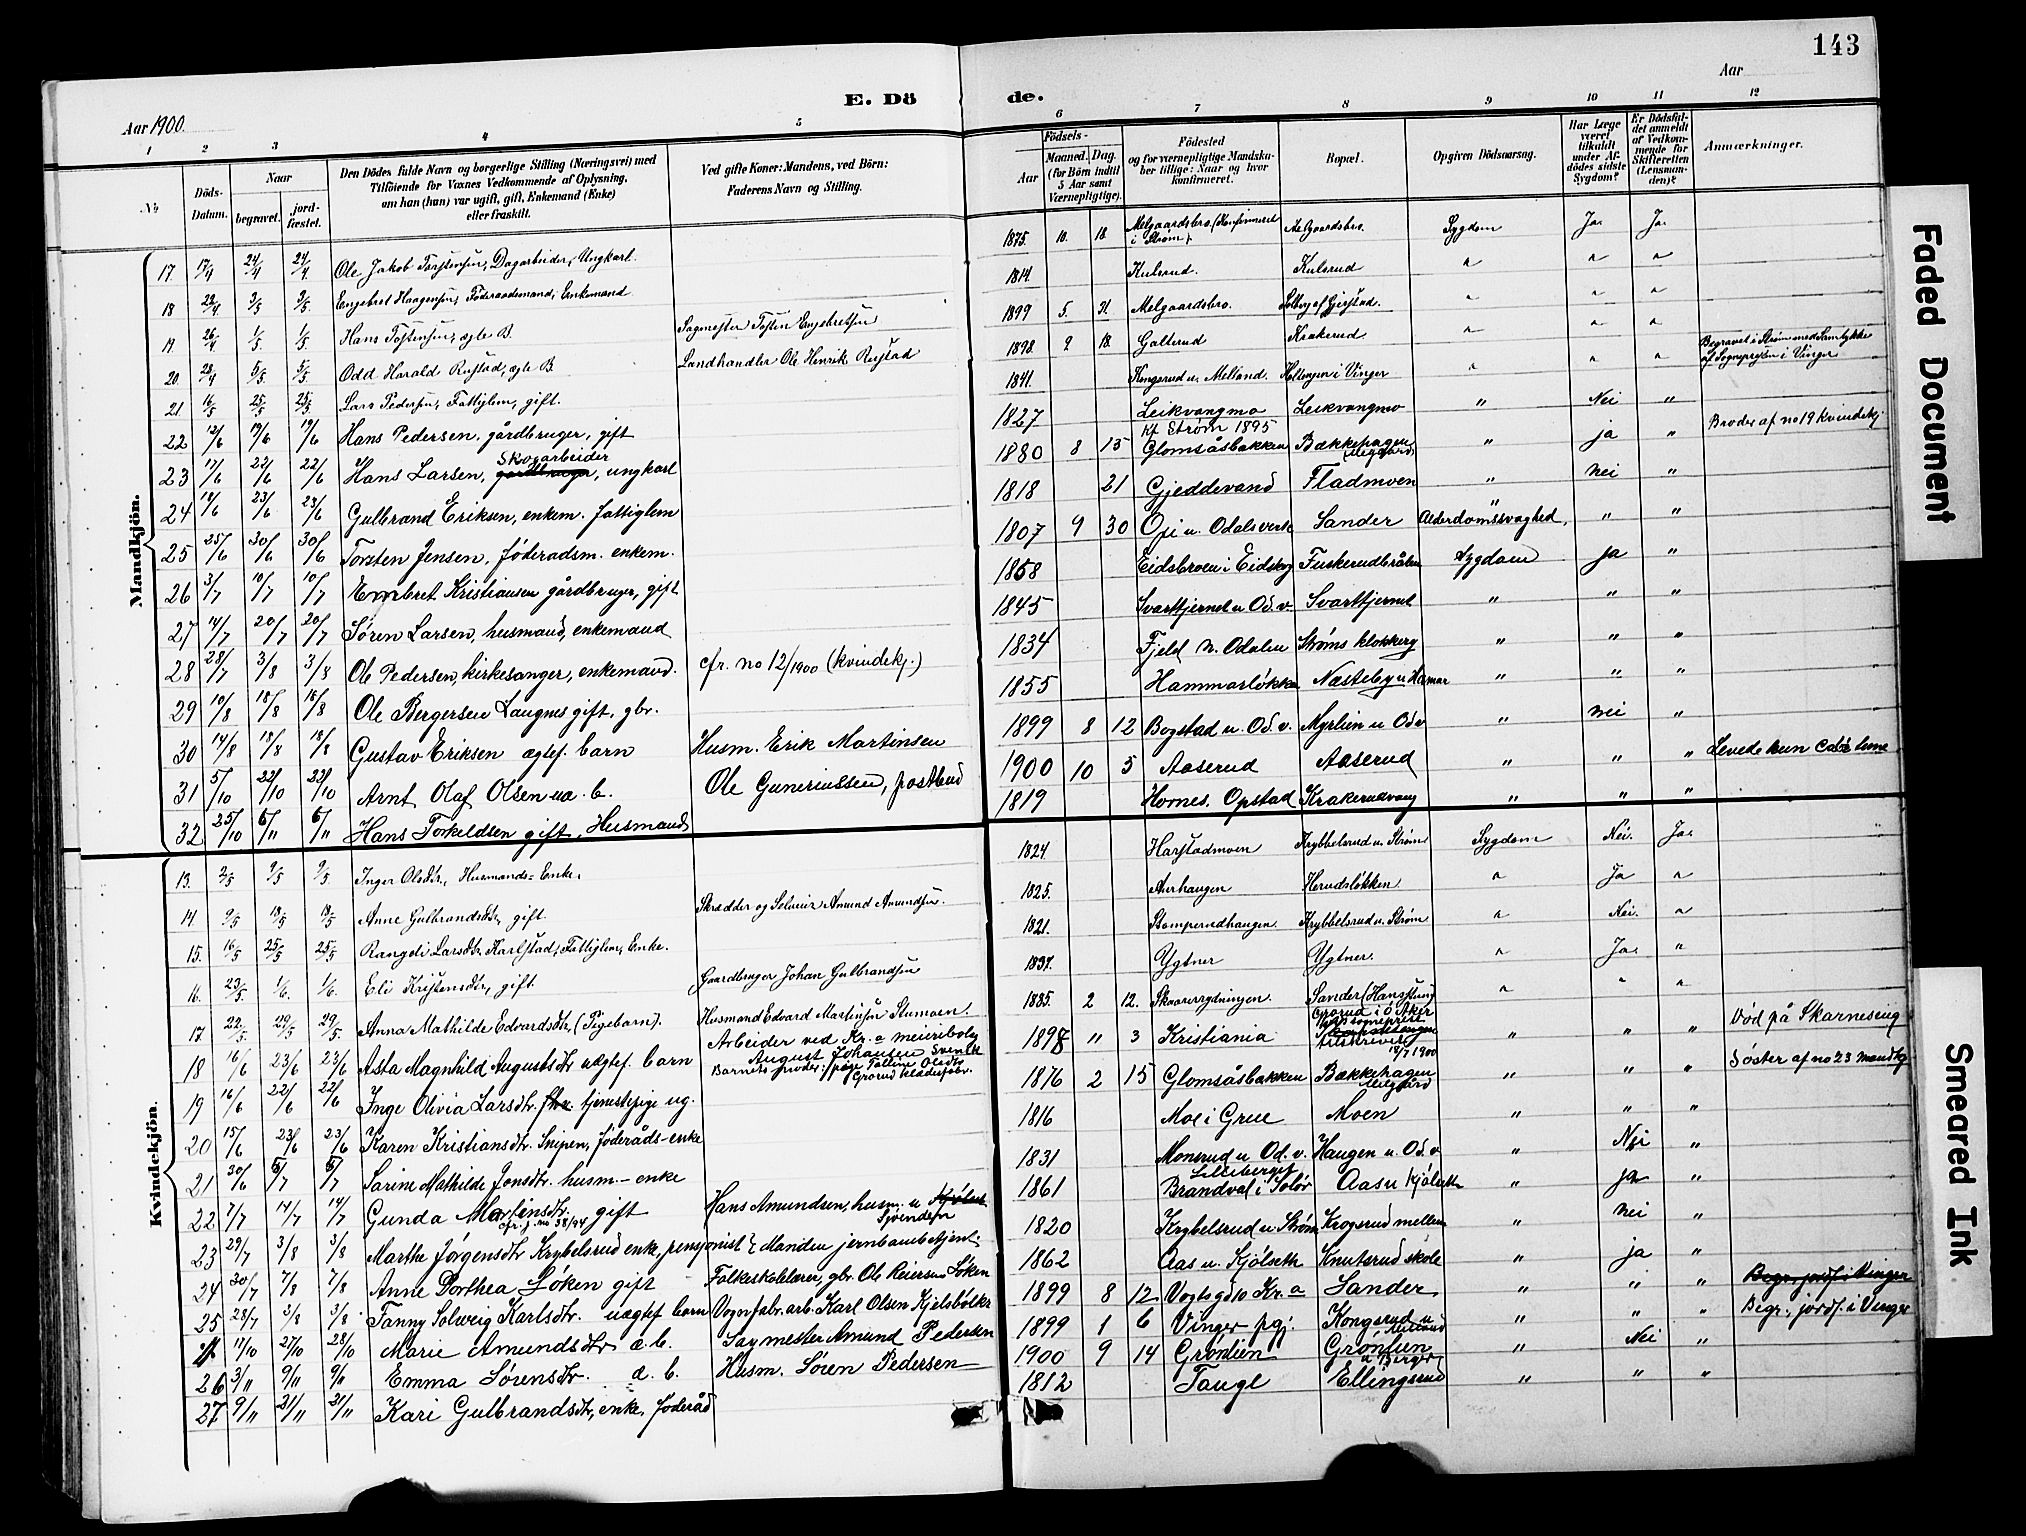 143
Aar
E. Dö de.
Aar 1900.
1 2 3 4 5 6 7 8 9 10 11 12
No
Döds-Datum.
Naar
begravet.
jord-fæstet.
Den Dödes fulde Navn og borgerlige Stilling (Næringsvei) med
Tilföiende for Voxnes Vedkommende af Oplysning,
om han (hun) var ugift, gift, Enkemand (Enke)
eller fraskilt.
Ved gifte Koner: Mandens, ved Börn:
Faderens Navn og Stilling.
Födsels-
Aar
Maaned. Dag.
(for Börn indtil
5 Aar samt
Værnepligtige).
Födested
og for værnepligtige Mandskaber tillige: Naar og hvor
konfirmeret.
Bopæl.
Opgiven Dödsaarsag.
Har Læge
været
tilkaldt
under Afdödes sidste
Sygdom?
Er Dödsfaldet anmeldt
af Vedkommende for
Skifteretten
(Lensmanden)?
Anmærkninger.
Mandkjön.
17 17/4 24/4 24/4 Ole Jakob Torstensen, Dagarbeider, Ungkarl. 1875. 10. 18. Melgaardsbro. (Konfirmeret i Strøm). Melgaardsbro. Sygdom Ja. Ja.
18 22/4 3/5 3/5 Engebret Haagensen, Føderaadsmand, Enkemand 1814. Kulsrud. Kulsrud " " "
19. 26/4 1/5 1/5 Hans Tostensen, ægte B. Sagmester Tosten Engebretsen 1899 5. 31. Melgaardsbro. Solberg af Gjerstad. " " "
20. 28/4 5/5 5/5 Odd Harald Rustad, ægte B Landhandler Ole Henrik Rustad 1898. 2 18. Galterud Krakerud " " "
21 16/5 25/5 25/5 Lars Pedersen, Fattiglem, gift. 1841. Kongsrud u. Melland. Holtengen i Vinger " " " Begravet i Strøm med Samtykke af Sognepresten i Vinger
22 12/6 19/6 19/6 Hans Pedersen, gårdbruger, gift 1827 Leikvangmo Leikvangmo " Nei "
23 17/6 22/6 22/6 Hans Larsen, Skogarbeider gårdbruger, ungkarl 1880 8 15 Kf Strøm 1895 Glomsåsbakken Bækkehagen Melgaard " ja " Broder af no 19 kvindekj.
24 18/6 23/6 23/6 Gulbrand Eriksen, enkem. fattiglem 1818 21 Gjeddevand Fladmoen " nei "
25 25/6 30/6 30/6 Torsten Jensen, føderadsm. enkem. 1807 9 30 Opi u. Odalsverk Sander Alderdomssvaghed, " "
26 3/7 10/7 10/7 Embret Kristiansen gårdbruger, gift 1858 Eidsbroen i Eidskog Fuskerudbråten Sygdom ja "
27 14/7 20/7 20/7 Søren Larsen, husmand, enkemand 1845 Svarttjernet u Od. v. Svarttjernet " " "
28 28/7 3/8 3/8 Ole Pedersen, kirkesanger, enkemand. cfr. no 12/1900 (kvindekj.) 1834 Fjeld N. Odalen Strøms klokkerg " " "
29 10/8 18/8 18/8 Ole Bergersen Langnes gift, gbr. 1855 Hammarløkken Næsteby u Hamar " " "
30 14/8 18/8 18/8 Gustav Eriksen ægtef. barn Husm. Erik Martinsen 1899 8 12 Bogstad u. Od. v. Myrlien u Od v " nei "
31 5/10 22/10 22/10 Arnt Olaf Olsen ua. b. Ole Guneriussen, postbud 1900 10 5 Aaserud Aaserud " " " Levede kun ca ½ time
32 25/10 6/11 6/11 Hans Torkeldsen gift, Husmand 1819 Hornes. Opstad Krakerudvang " " "
Kvindekjön.
13. 2/5 9/5 9/5. Inger Olsdtr., Husmands-Enke, 1824. Harstadmoen Krybbelsrud u. Strøm Sygdom Nei. Ja.
14. 9/5 18/5 18/5 Anne Gulbrandsdtr, gift. Skrædder og Selveier Amund Amundsen. 1825. Aurhaugen Herudsløkken. " Ja "
15. 16/5 25/5 25/5 Rangdi Larsdtr. Karlstad, Fattiglem, Enke. 1821. Stomperudhaugen Krybbelsrud u. Strøm " Nei. "
16. 23/5. 1/6. 1/6. Eli Kristensdtr, gift. Gaardbruger Johan Gulbrandsen 1837. Ygtner Ygtner. " Ja. "
17. 22/5 29/5 29/5. Anna Mathilde Edvardsdtr, (Pigebarn). Husmand Edvard Martinsen Stumoen. 1885. 2 12. Skaarerrydningen. Sander (Hansstun) " " "
18 16/6 23/6 23/6 Asta Magnhild Augustsdtr uægtef. barn Arbeider ved Kr.a meieribolag August Johansen Svensk Barnets moder: pige Tolline Olsdtr Grorud klædesfabr. 1898 " 3 Kristiania Grorud i Ö Aker tilskrivet 18/7 1900 " " " Död på Skarneseng
19 16/6 22/6 22/6 Inge Olivia Larsdtr. tjenestepige ug. 1876 2 15 Glomsåsbakken Bækkehagen Melgård " " " Söster af no 23 mandkj
20 15/6 23/6 23/6 Karen Kristiansdtr. Snipen, föderåds-enke 1816 Moe i Grue Moen " " "
21 30/6 5/7 5/7 Sarine Mathilde Jonsdtr. husm.-enke 1831 Monsrud u Od. v. Haugen u. Od. v " Nei "
22 7/7 14/7 14/7 Gunda Martinsdtr. gift cfr. j. no 38/94 Hans Amundsen, husm. u Kjölset 1861 Lilleberget Brandval i Solör Aas u Kjölseth " ja "
23 29/7 3/8 3/8 Marthe Jörgensdtr Krybelsrud enke, pensjonist & Manden jernbanebetjent. 1820 Krybelsrud u. Ström Krogsrud mellem " nei "
24 30/7 7/8 7/8 Anne Dorthea Löken gift Folkeskolelærer, gbr. Ole Reiersen Löken 1862 Aas u. Kjölseth Knutsrud skole " ja "
25 28/7 3/8 3/8 Fanny Solveig Karlsdtr. uægtef barn Vognfabr. arb. Karl Olsen Kjelsbölkr 1899 8 12 Vogtsgd 10 Kr.a Sander " " " Begr., jordf. i Vinger
17/10 27/10 28/10 Marie Amundsdtr æ. b. Sagmester Amund Pedersen 1899 1 6 Vinger pgj. Kongsrud u. Melland " " " Begr., jordf. i Vinger
26 3/11 9/11 9/11 Emma Sørensdtr. æ. b. Husm. Søren Pedersen 1900 9 14 Grønlien Grønlien u Berger " Nei "
27 9/11 21/11 21/11 Kari Gulbrandsdtr, enke, føderåd 1812 Tauge Ellingsrud " " "
Faded Document
Smeared Ink